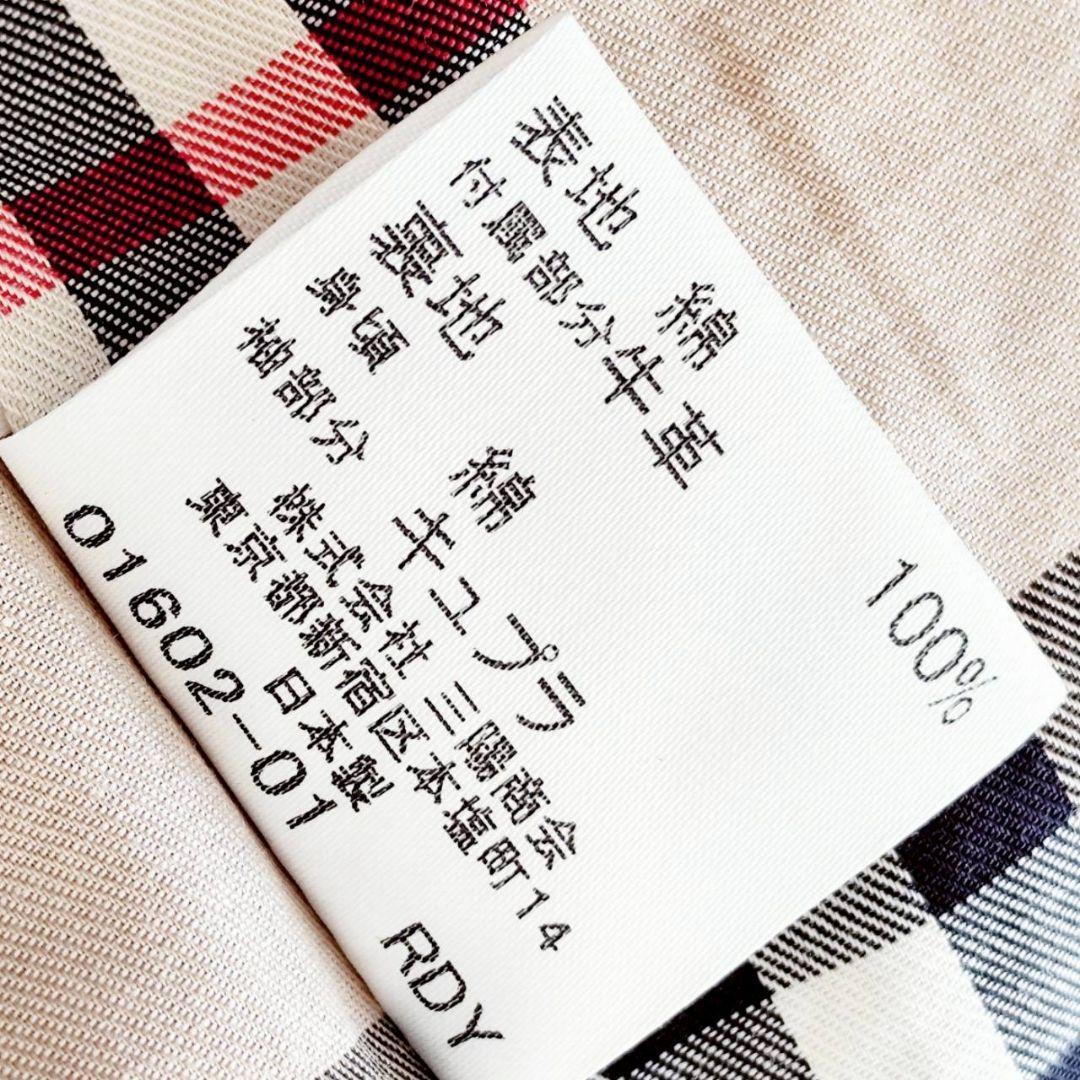 表地 綿 100%
付属部分牛革
裏地
身頃 綿
袖部分 キュプラ
株式会社 三陽商会
東京都新宿区本塩町14
日本製
01602-01 RDY